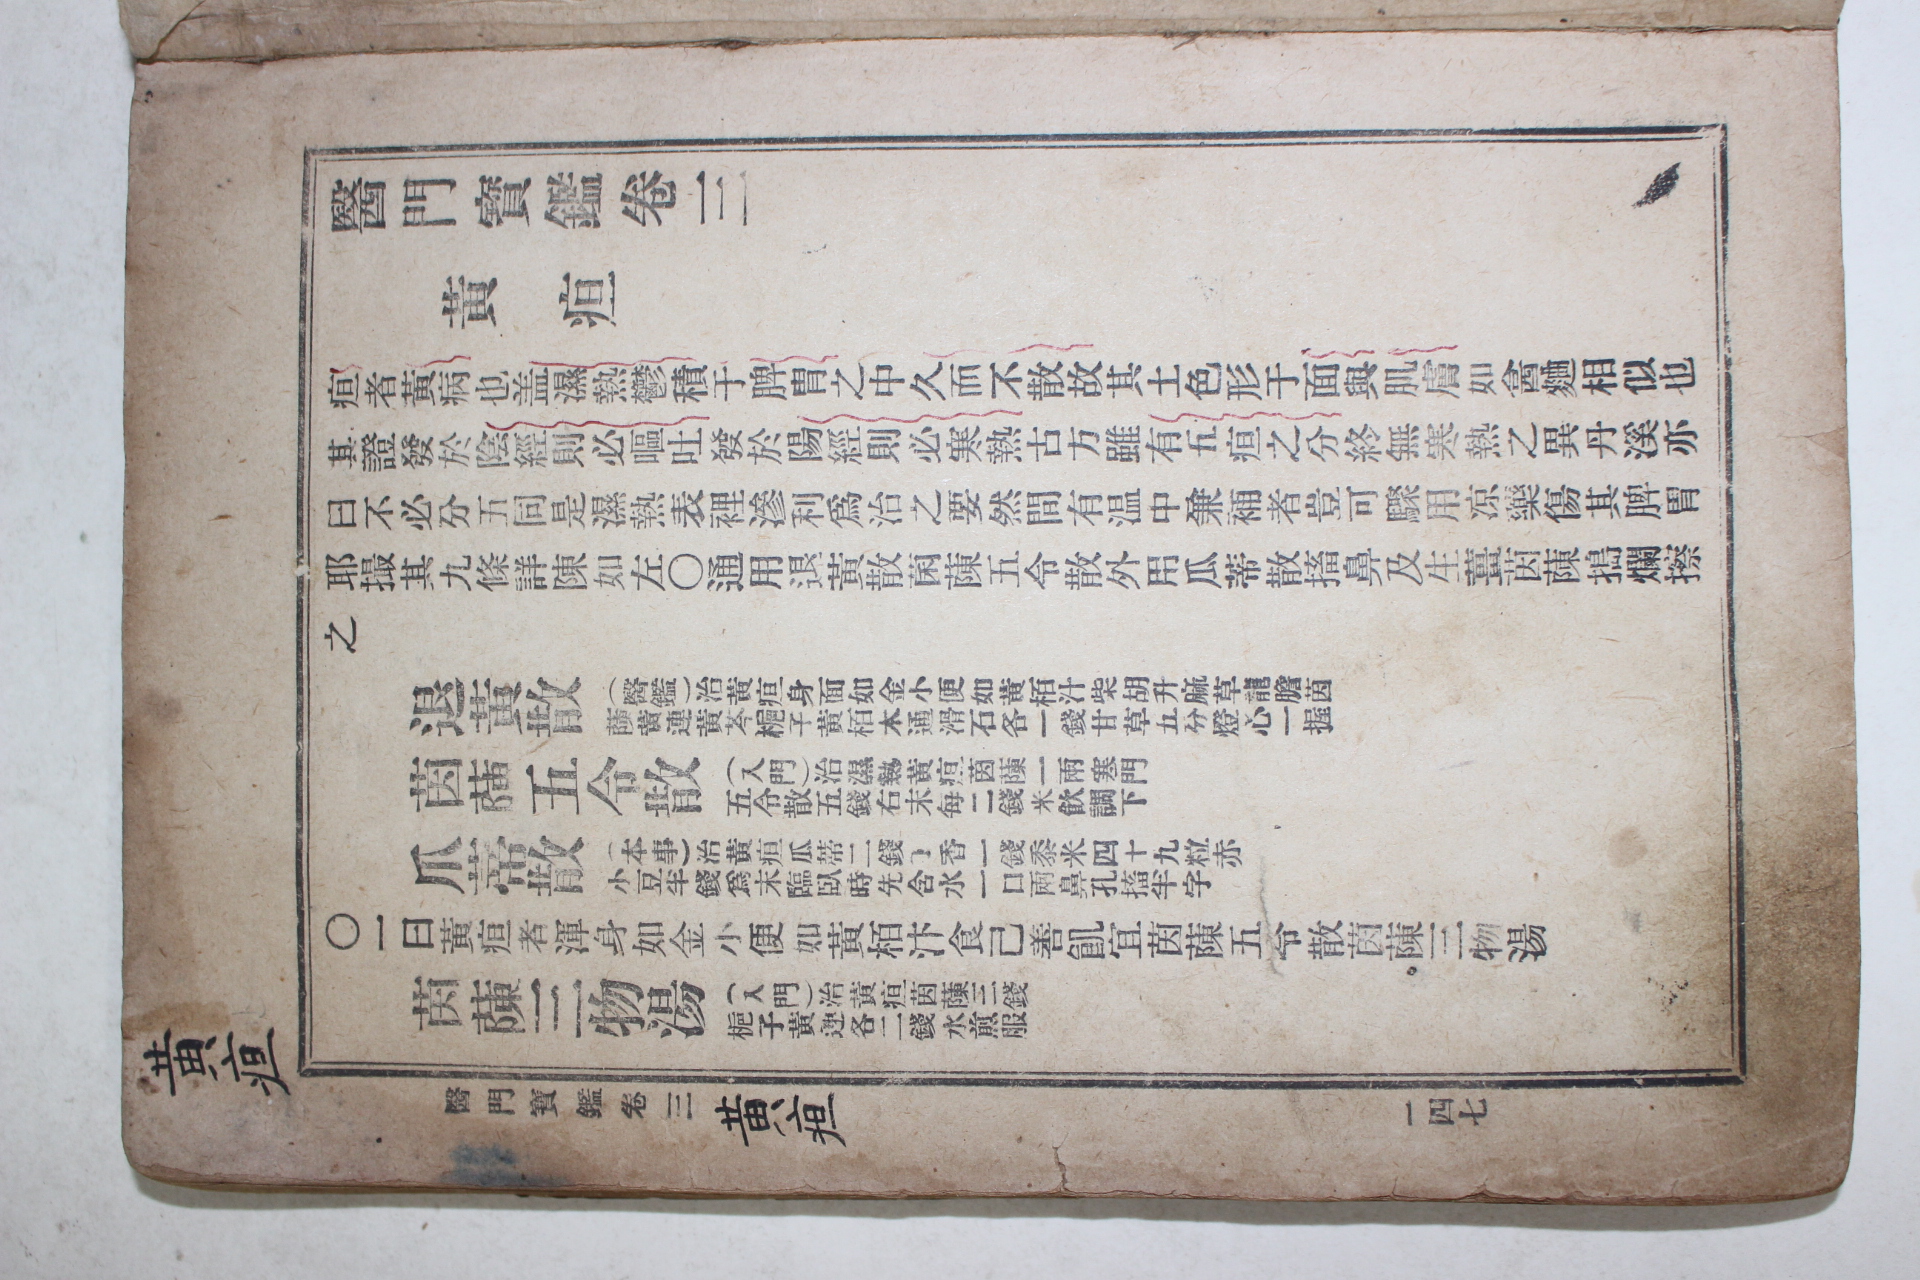 醫門寶鑑卷三
黃疸
疸者黃病也盖濕熱鬱積于脾胃之中久而不散故其土色形于面與肌膚如盦麯相似也
其證發於陰經則必嘔吐發於陽經則必寒熱古方雖有五疸之分終無寒熱之異丹溪亦
曰不必分五同是濕熱表裡滲利爲治之要然間有温中兼補者豈可驟用凉藥傷其脾胃
耶撮其九條詳陳如左○通用退黃散茵蔯五令散外用瓜蒂散搐鼻及生薑茵蔯搗爛擦
之
退黃散（醫鑑）治黃疸身面如金小便如黃栢汁柴胡升麻草龍膽茵
蔯黃連黃芩梔子黃栢木通滑石各一錢甘草五分燈心一握
茵蔯五令散（入門）治濕熱黃疸茵蔯一兩
五令散五錢右末每二錢米飮調下
瓜蒂散（本事）治黃疸瓜蒂二錢丁香一錢黍米四十九粒赤
小豆半錢爲末臨臥時先含水一口兩鼻孔搐半字
○一曰黃疸者渾身如金小便如黃栢汁食已善飢宜茵蔯五令散茵蔯三物湯
茵蔯三物湯（入門）治黃疸茵蔯三錢
梔子黃連各二錢水煎服
醫門寶鑑卷三
黃疸
一四七
黃疸